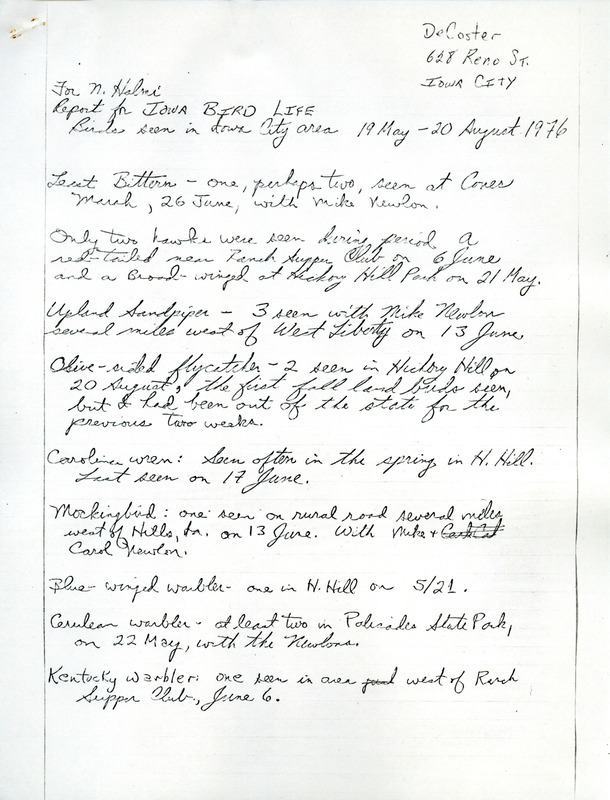 DeCoster
628 Reno St.
Iowa City
For N. Halmi
Report for IOWA BIRD LIFE
Birds seen in Iowa City area 19 May - 20 August 1976
Least Bittern - one, perhaps two, seen at Cones
Marsh, 26 June, with Mike Newlon.
Only two hawks were seen during period. A
red-tailed near Ranch Supper Club on 6 June
and a Broad-winged at Hickory Hill Park on 21 May.
Upland Sandpiper - 3 seen with Mike Newlon
several miles west of West Liberty on 13 June
Olive-sided flycatcher - 2 seen in Hickory Hill on
20 August, the first fall land birds seen,
but I had been out of the state for the
previous two weeks.
Carolina wren: Seen often in the spring in H. Hill.
Last seen on 17 June.
Mockingbird: one seen on rural road several miles
west of Hills, Ia. on 13 June. With Mike +
Carol Newlon.
Blue-winged warbler - one in H. Hill on 5/21.
Cerulean warbler - at least two in Palisades State Park,
on 22 May, with the Newlons.
Kentucky warbler: one seen in area west of Ranch
Supper Club, June 6.